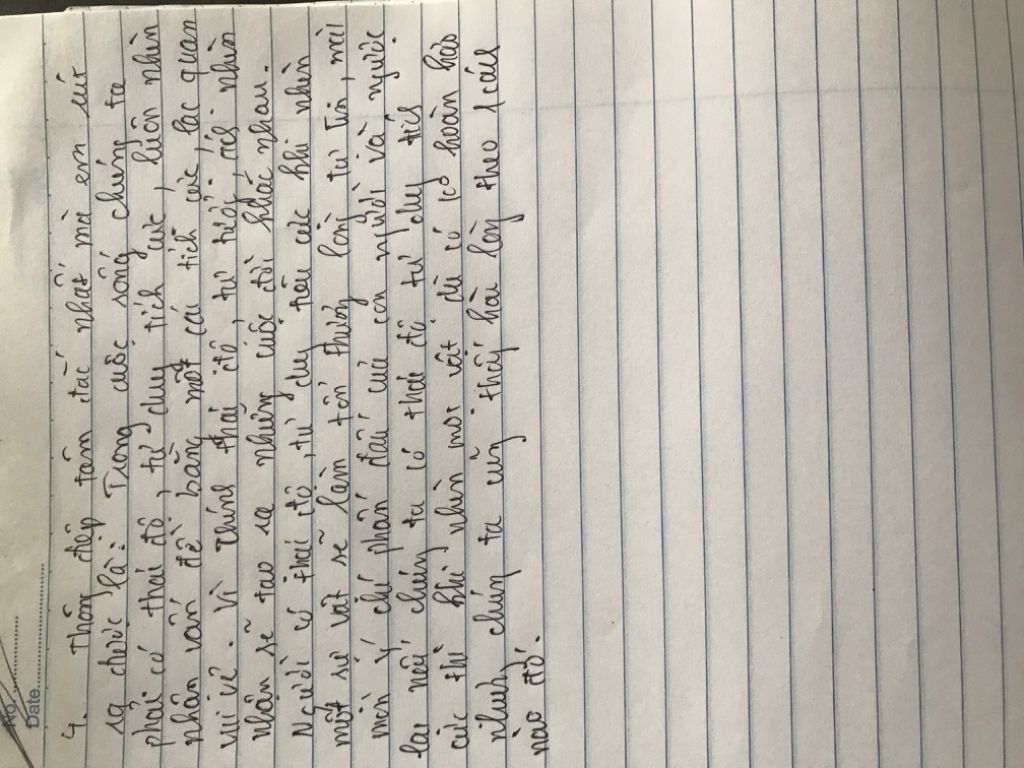 No.
Date
4. Thông điệp tâm đắc nhất mà em rút
ra được là: Trong cuộc sống chúng ta
phải có thái độ, tư duy tích cực, luôn nhìn
nhận vấn đề bằng một cái tích cực, lạc quan
vui vẻ. Vì chính thái độ, tư tưởng, cách nhìn
nhận sẽ tạo ra những cuộc đời khác nhau.
Người có thái độ, tư duy tiêu cực khi nhìn
một sự vật sẽ làm tổn thương lòng tự tin, mài
mòn ý chí phấn đấu của con người và ngược
lại nếu chúng ta có thái độ tư duy tích
cực thì khi nhìn một vật dù có ko hoàn hảo
nhưng chúng ta cũng thấy hài lòng theo 1 cách
nào đó.